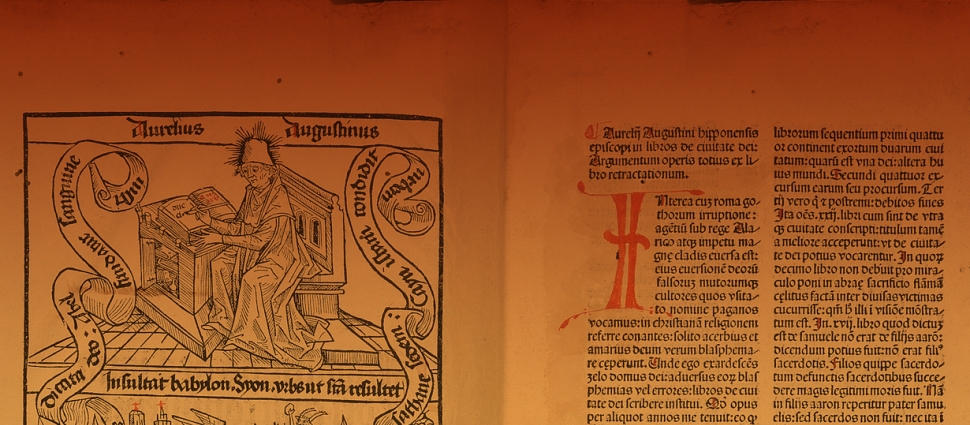 Aurelius Augustinus
Insultat babylon. Syon. vrbs ut stã resultet
Aurelij Augustini hipponensis
episcopi in libros de ciuitate dei:
Argumentum operis totius ex li-
bro retractationum.
INterea cuȝ roma go-
thorum irruptione:
agẽtiũ sub rege Ala-
rico atqȝ impetu ma-
gne cladis euersa est:
eius euersionẽ deorũ
falsoruȝ mutorumqȝ
cultores quos vsita-
to nomine paganos
vocamus: in christianã religionem
referre conantes: solito acerbius et
amarius deum verum blasphema-
re ceperunt. Unde ego exardescẽs
zelo domus dei: aduersus eoȝ blas
phemias vel errores: libros de ciui
tate dei scribere institui. Qđ opus
per aliquot annos me tenuit: eo ꝙ
librorum sequentium primi quattu
or continent exortum duarum ciui
tatum: quarũ est vna dei: altera hu
ius mundi. Secundi quattuor ex-
cursum earum seu procursum. Ter
tij vero qͥ ⁊ postremi: debitos fines
Ita oẽs .xxij. libri cum sint de vtra
qȝ ciuitate conscripti: titulum tamẽ
a meliore acceperunt: vt de ciuita-
te dei potius vocarentur. In quoꝝ
decimo libro non debuit pro mira-
culo poni in abrae sacrificio flãmã
celitus factã inter diuisas victimas
cucurrisse: qm̃ ħ illi ĩ visiõe mõstra-
tum est. In .xvij. libro quod dictuȝ
est de samuele nõ erat de filijs aarõ:
dicendum potius fuit: nõ erat filiꝰ
sacerdotis. Filios quippe sacerdo-
tum defunctis sacerdotibus succe-
dere magis legitimi moris fuit. Nã
in filijs aaron reperitur pater samu.
elis: sed sacerdos non fuit: nec ita ĩ